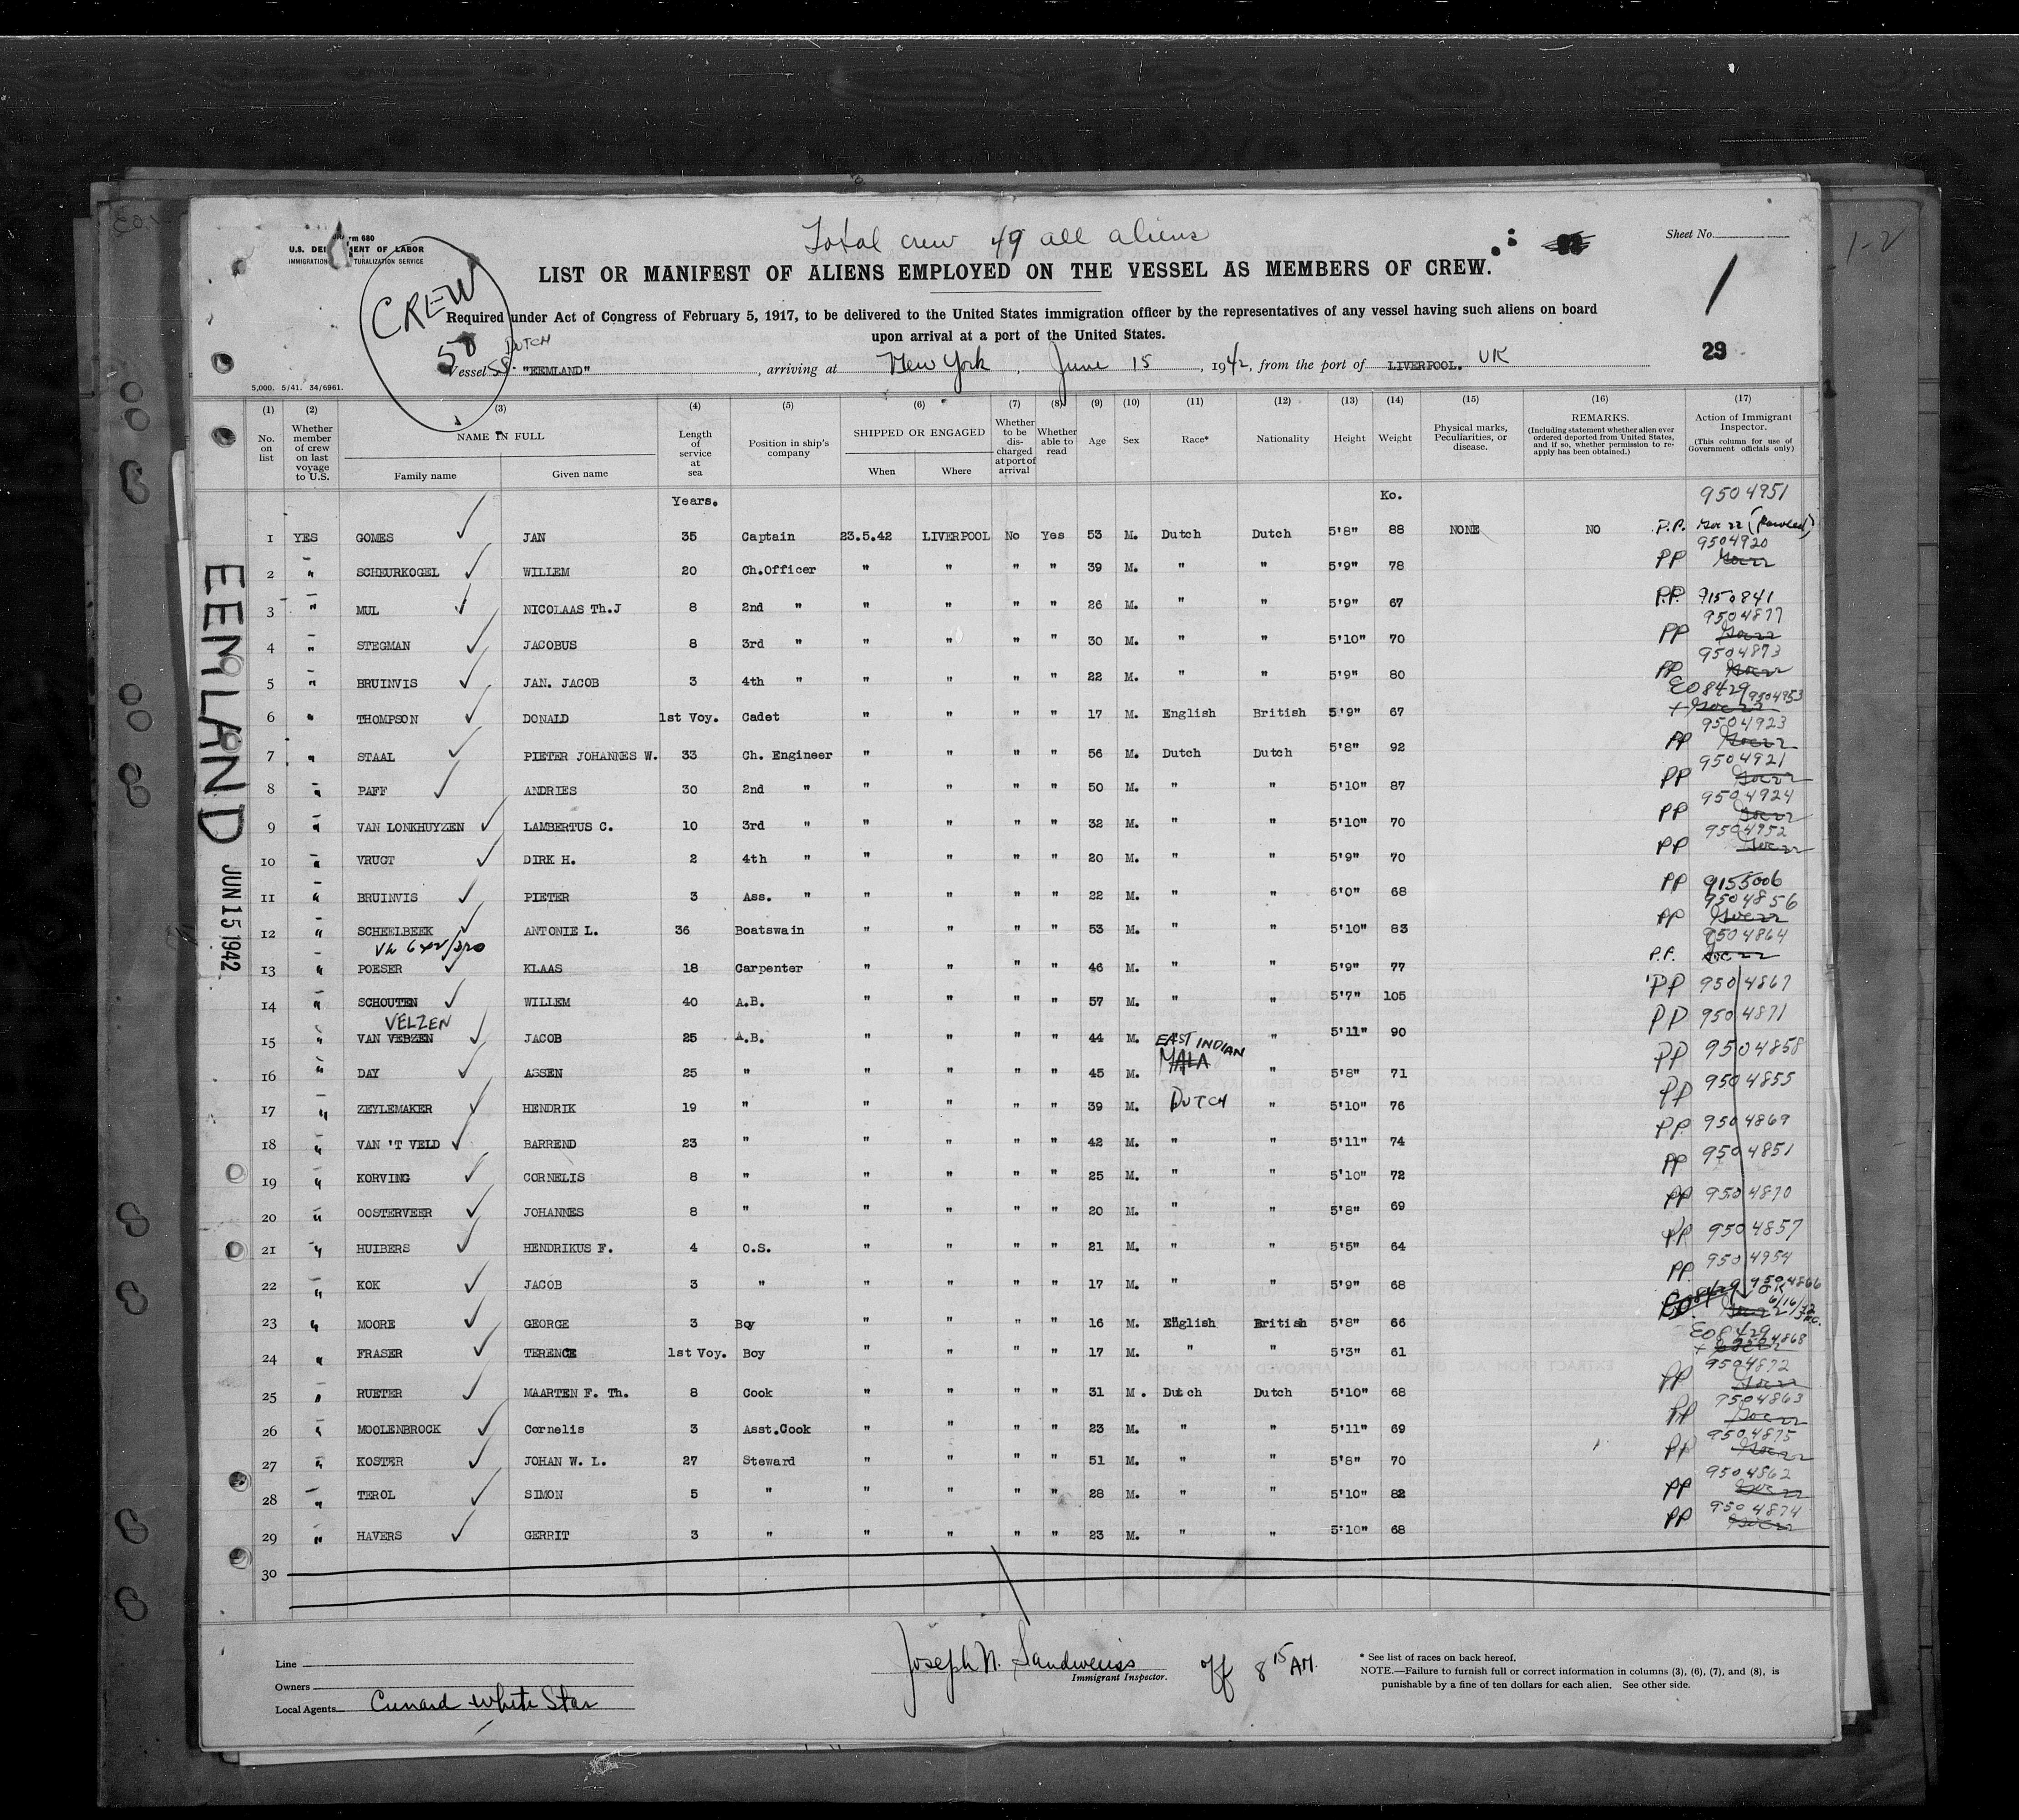 Total crew 49 all aliens
Form 680
U.S. DEPARTMENT OF LABOR
IMMIGRATION NATURALIZATION SERVICE
Sheet No.
1-2
CREW
50
LIST OR MANIFEST OF ALIENS EMPLOYED ON THE VESSEL AS MEMBERS OF CREW.
1
Required under Act of Congress of February 5, 1917, to be delivered to the United States immigration officer by the representatives of any vessel having such aliens on board
upon arrival at a port of the United States.
29
DUTCH
Vessel SS. "EEMLAND", arriving at New York, June 15, 1942, from the port of LIVERPOOL. UK
5,000, 5/41. 34/6961.
(1) (2) (3) (4) (5) (6) (7) (8) (9) (10) (11) (12) (13) (14) (15) (16) (17)
No. on list
Whether member of crew on last voyage to U.S.
NAME IN FULL
Family name
Given name
Length of service at sea
Position in ship's company
SHIPPED OR ENGAGED
When
Where
Whether to be discharged at port of arrival
Whether able to read
Age
Sex
Race*
Nationality
Height
Weight
Physical marks, Peculiarities, or disease.
REMARKS.
(Including statement whether alien ever ordered deported from United States, and if so, whether permission to re-apply has been obtained.)
Action of Immigrant Inspector.
(This column for use of Government officials only)
Years. Ko. 9504951
1 YES GOMES JAN 35 Captain 23.5.42 LIVERPOOL No Yes 53 M. Dutch Dutch 5'8" 88 NONE NO P.P.
2 " SCHEURKOGEL WILLEM 20 Ch.Officer " " " " 39 M. " " 5'9" 78 PP 9504920
3 " MUL NICOLAAS Th.J 8 2nd " " " " " 26 M. " " 5'9" 67 P.P. 9150841
4 " STEGMAN JACOBUS 8 3rd " " " " " 30 M. " " 5'10" 70 PP 9504877
5 " BRUINVIS JAN. JACOB 3 4th " " " " " 22 M. " " 5'9" 80 PP 9504873
6 " THOMPSON DONALD 1st Voy. Cadet " " " " 17 M. English British 5'9" 67 EO 8429 9504953
7 " STAAL PIETER JOHANNES W. 33 Ch. Engineer " " " " 56 M. Dutch Dutch 5'8" 92 PP 9504923
8 " PAFF ANDRIES 30 2nd " " " " " 50 M. " " 5'10" 87 PP 9504921
9 " VAN LONKHUYZEN LAMBERTUS C. 10 3rd " " " " " 32 M. " " 5'10" 70 PP 9504924
10 " VRUGT DIRK H. 2 4th " " " " " 20 M. " " 5'9" 70 PP 9504952
11 " BRUINVIS PIETER 3 Ass. " " " " " 22 M. " " 6'0" 68 PP 9155006
12 " SCHEELBEEK ANTONIE L. 36 Boatswain " " " " 53 M. " " 5'10" 83 PP 9504856
13 " POESER KLAAS 18 Carpenter " " " " 46 M. " " 5'9" 77 P.P. 9504864
14 " SCHOUTEN WILLEM 40 A.B. " " " " 57 M. " " 5'7" 105 PP 9504867
VELZEN
15 " VAN VEBZEN JACOB 25 A.B. " " " " 44 M. " 5'11" 90 PP 9504871
EAST INDIAN
16 " DAY ASSEN 25 " " " " " 45 M. MALA 5'8" 71 PP 9504858
17 " ZEYLEMAKER HENDRIK 19 " " " " " 39 M. DUTCH " 5'10" 76 PP 9504855
18 " VAN 'T VELD BARREND 23 " " " " " 42 M. " " 5'11" 74 PP 9504869
19 " KORVING CORNELIS 8 " " " " " 25 M. " " 5'10" 72 PP 9504851
20 " OOSTERVEER JOHANNES 8 " " " " " 20 M. " " 5'8" 69 PP 9504870
21 " HUIBERS HENDRIKUS F. 4 O.S. " " " " 21 M. " " 5'5" 64 PP 9504857
22 " KOK JACOB 3 " " " " " 17 M. " " 5'9" 68 PP. 9504954
23 " MOORE GEORGE 3 Boy " " " " 16 M. English British 5'8" 66 9504866 6/16/42
24 " FRASER TERENCE 1st Voy. Boy " " " " 17 M. " " 5'3" 61 EO 8429 4868
25 " RUETER MAARTEN F. Th. 8 Cook " " " " 31 M. Dutch Dutch 5'10" 68 PP 9504872
26 " MOOLENBROCK Cornelis 3 Asst.Cook " " " " 23 M. " " 5'11" 69 PP 9504863
27 " KOSTER JOHAN W. L. 27 Steward " " " " 51 M. " " 5'8" 70 PP 9504875
28 " TEROL SIMON 5 " " " " " 28 M. " " 5'10" 82 PP 9504862
29 " HAVERS GERRIT 3 " " " " " 23 M. " " 5'10" 68 PP 9504874
30
EEMLAND
JUN 15 1942
Line
Owners
Local Agents Cunard White Star
Joseph N. Sandweiss
Immigrant Inspector.
off 8 15 AM.
* See list of races on back hereof.
NOTE.—Failure to furnish full or correct information in columns (3), (6), (7), and (8), is
punishable by a fine of ten dollars for each alien. See other side.